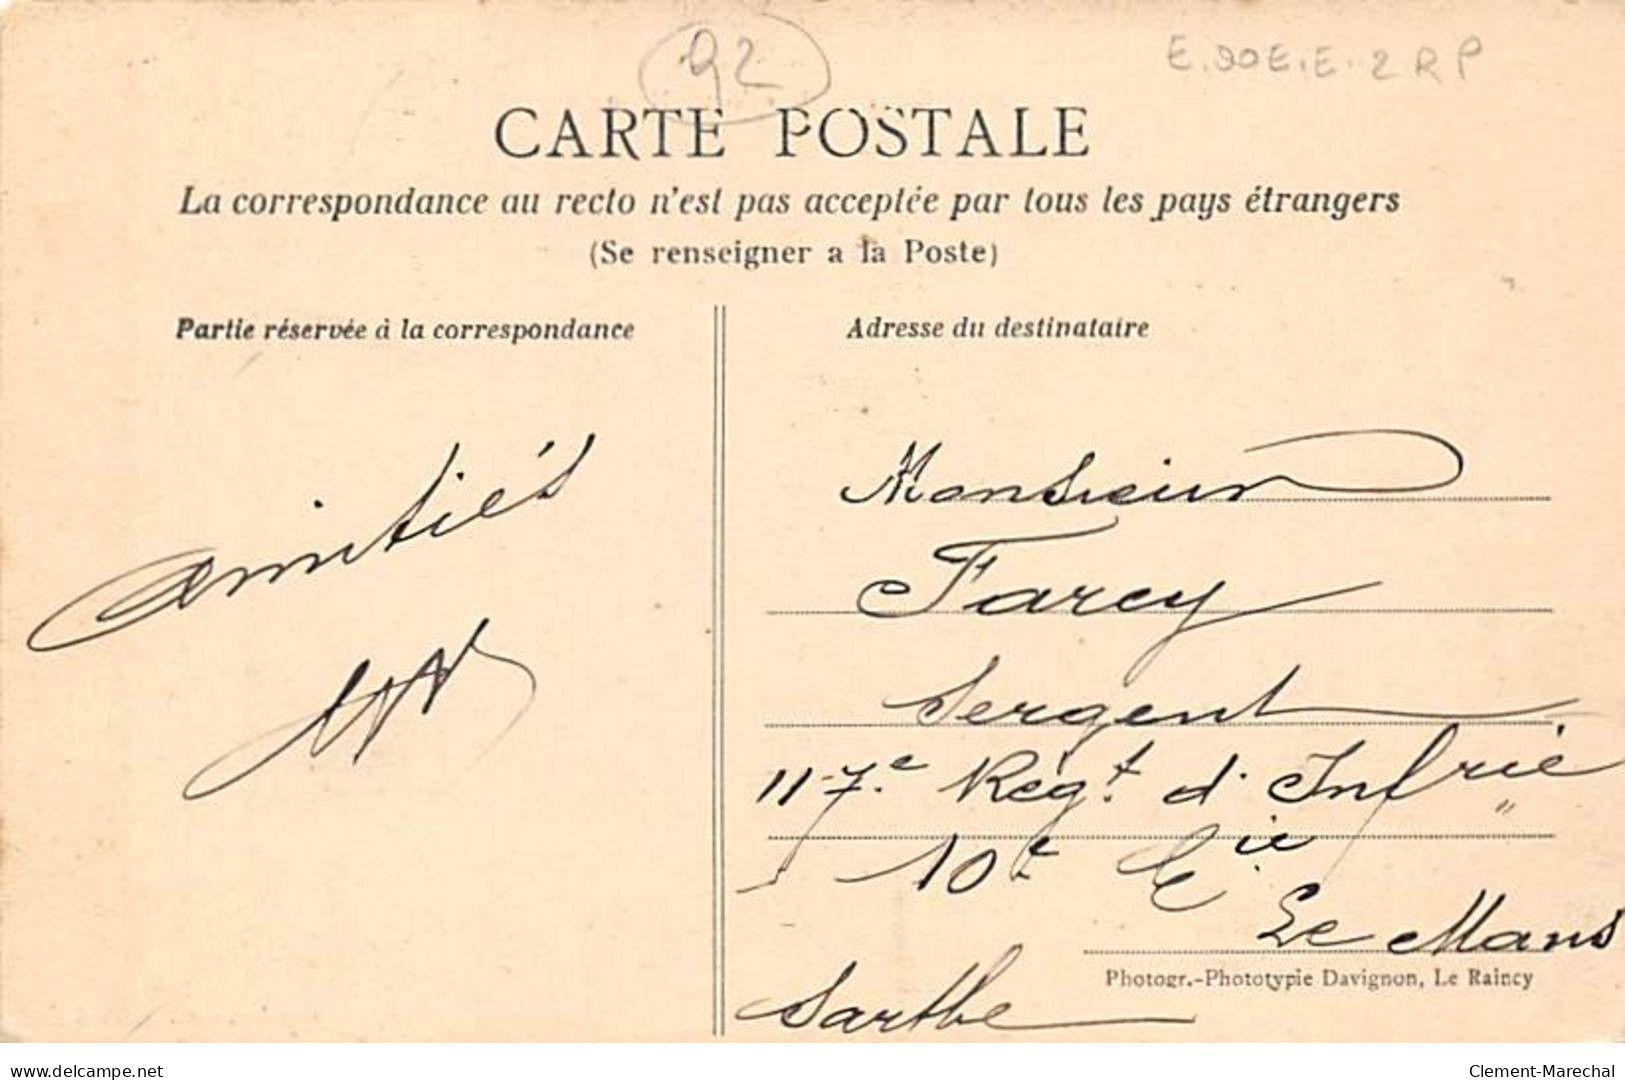 92
E.90E.E.2RP
CARTE POSTALE
La correspondance au recto n'est pas acceptée par tous les pays étrangers
(Se renseigner a la Poste)
Partie réservée à la correspondance
Adresse du destinataire
amitiés
Monsieur
Farcy
Sergent
117.e Rég.t d'Infrie
10e Cie
Le Mans
Sarthe
Photogr.-Phototypie Davignon, Le Raincy
delcampe.net
Clement-Marechal